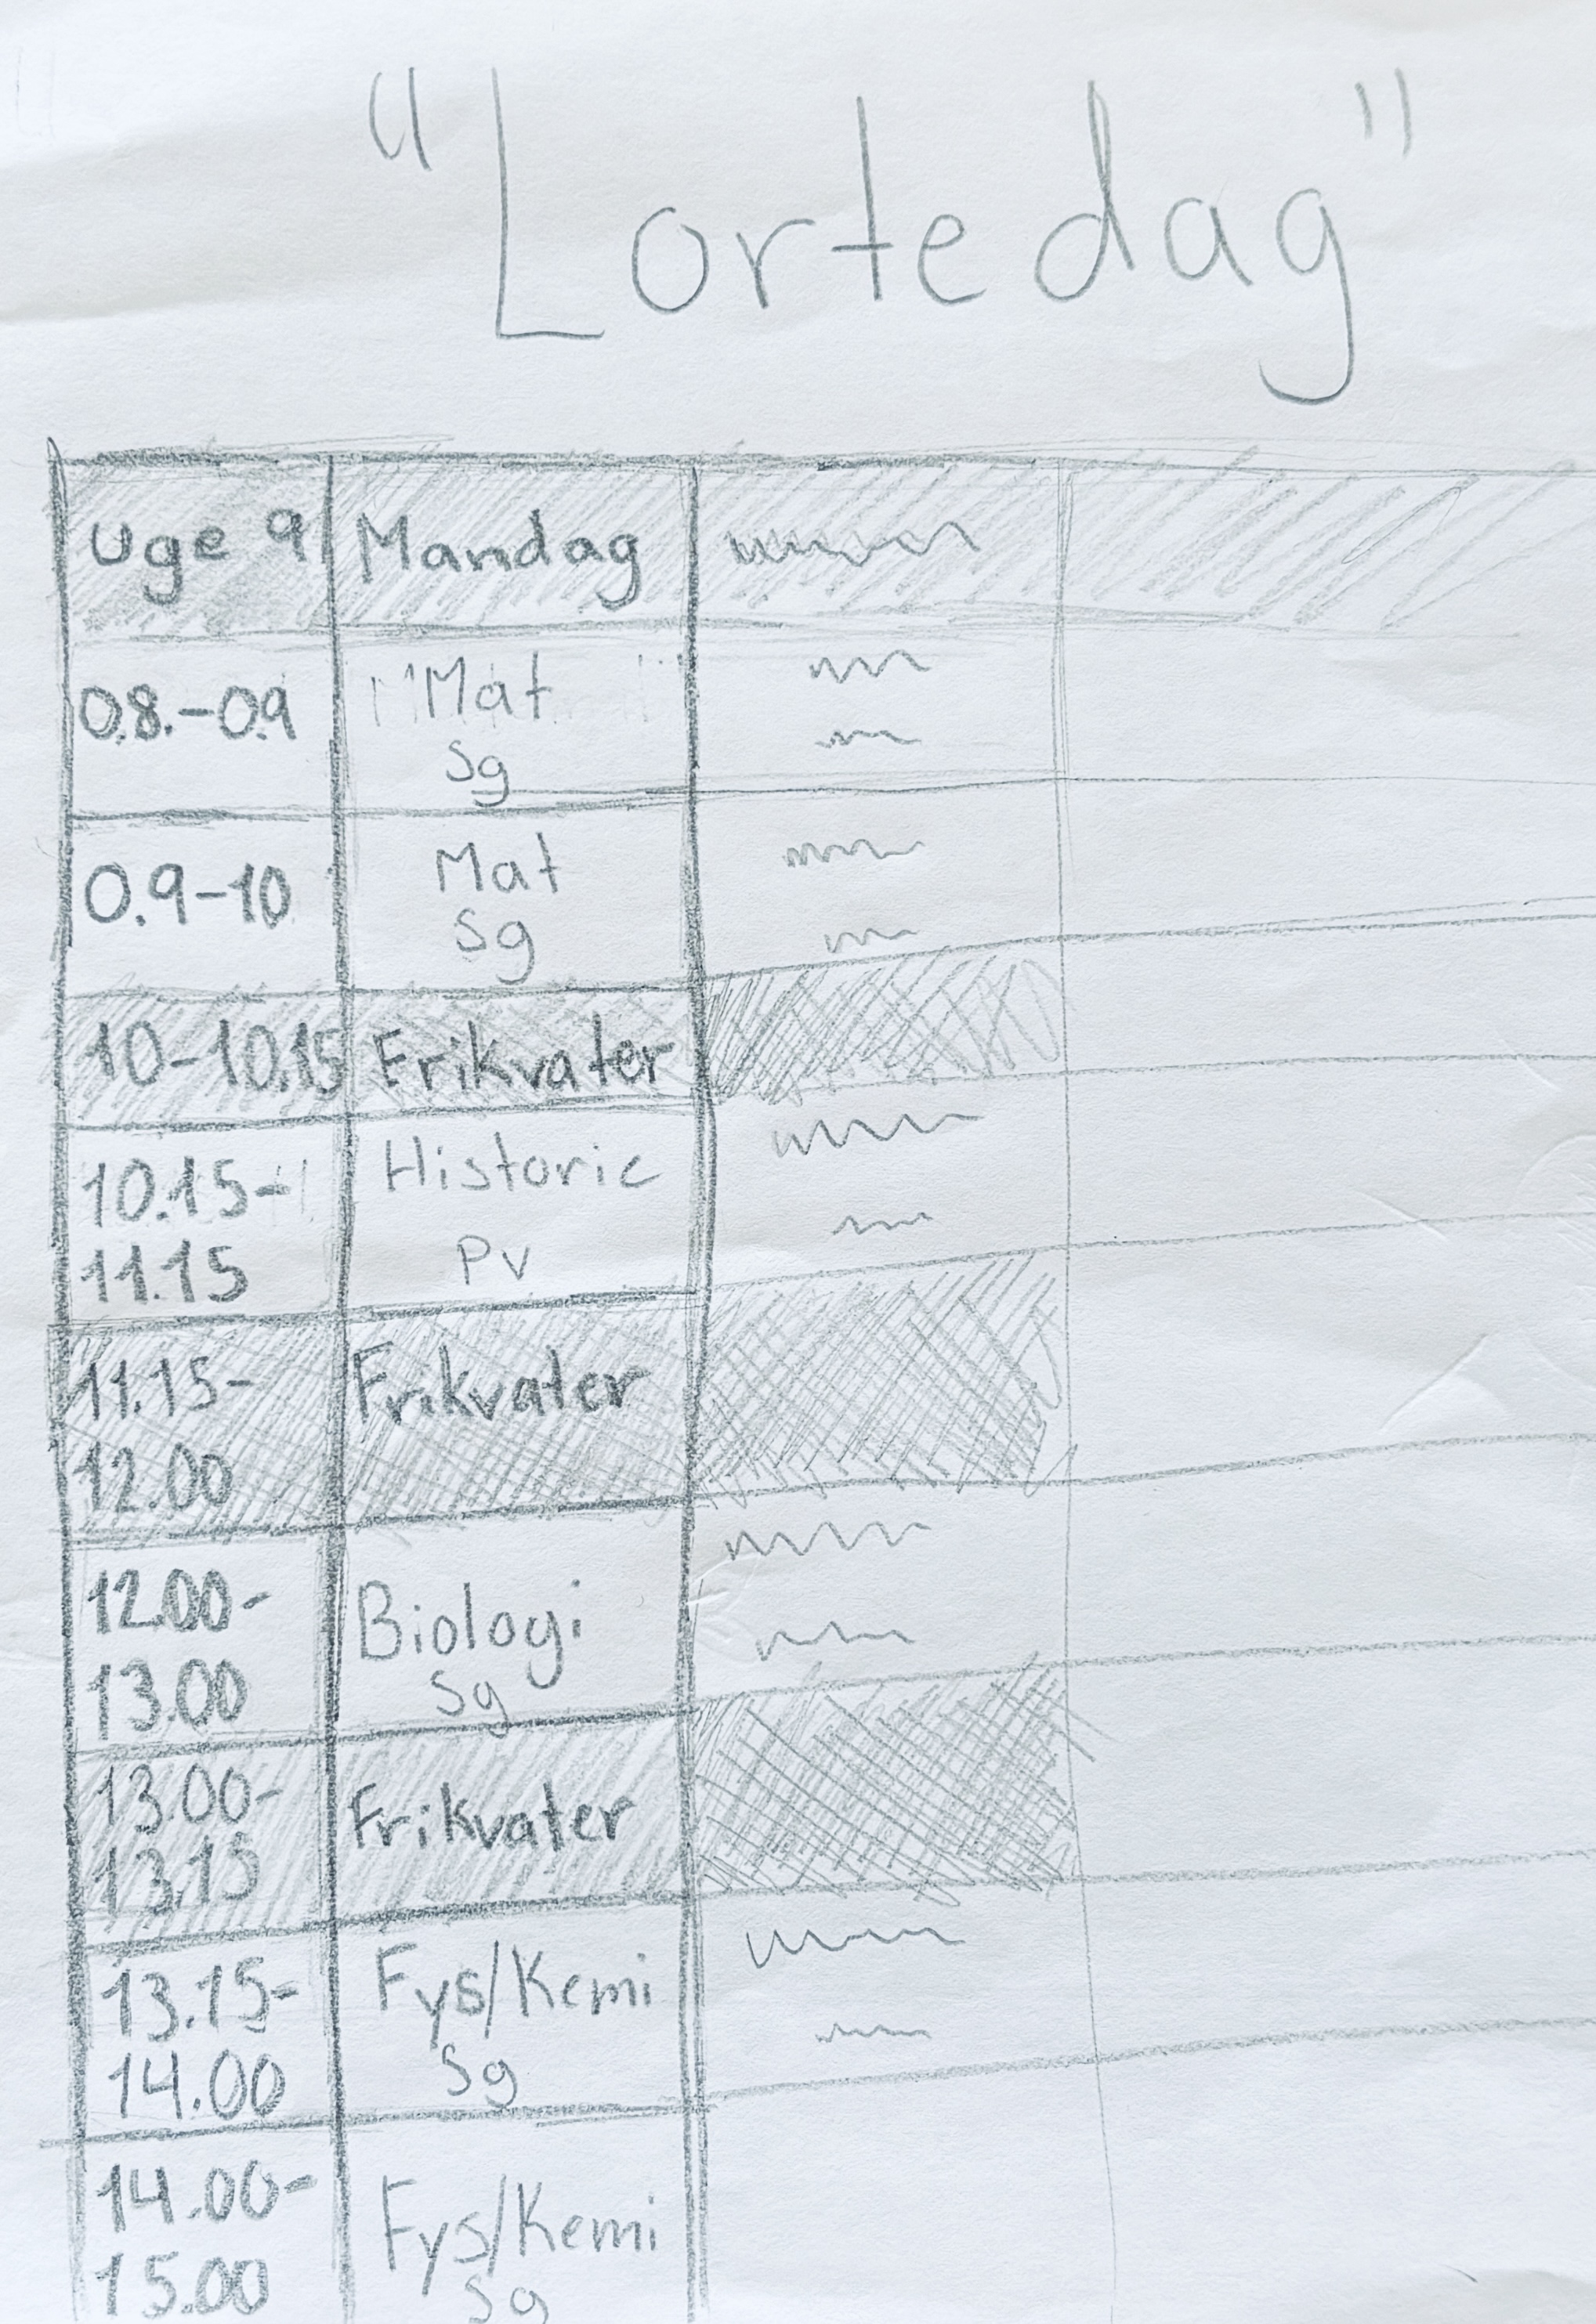 "Lortedag"
Uge 9 Mandag
08.-09 Mat
Sg
0.9-10 Mat
Sg
10-10.15 Frikvater
10.15- Historie
11.15 Pv
11.15- Frikvater
12.00
12.00- Biologi
13.00 Sg
13.00- Frikvater
13.15
13.15- Fys/Kemi
14.00 Sg
14.00- Fys/Kemi
15.00 Sg